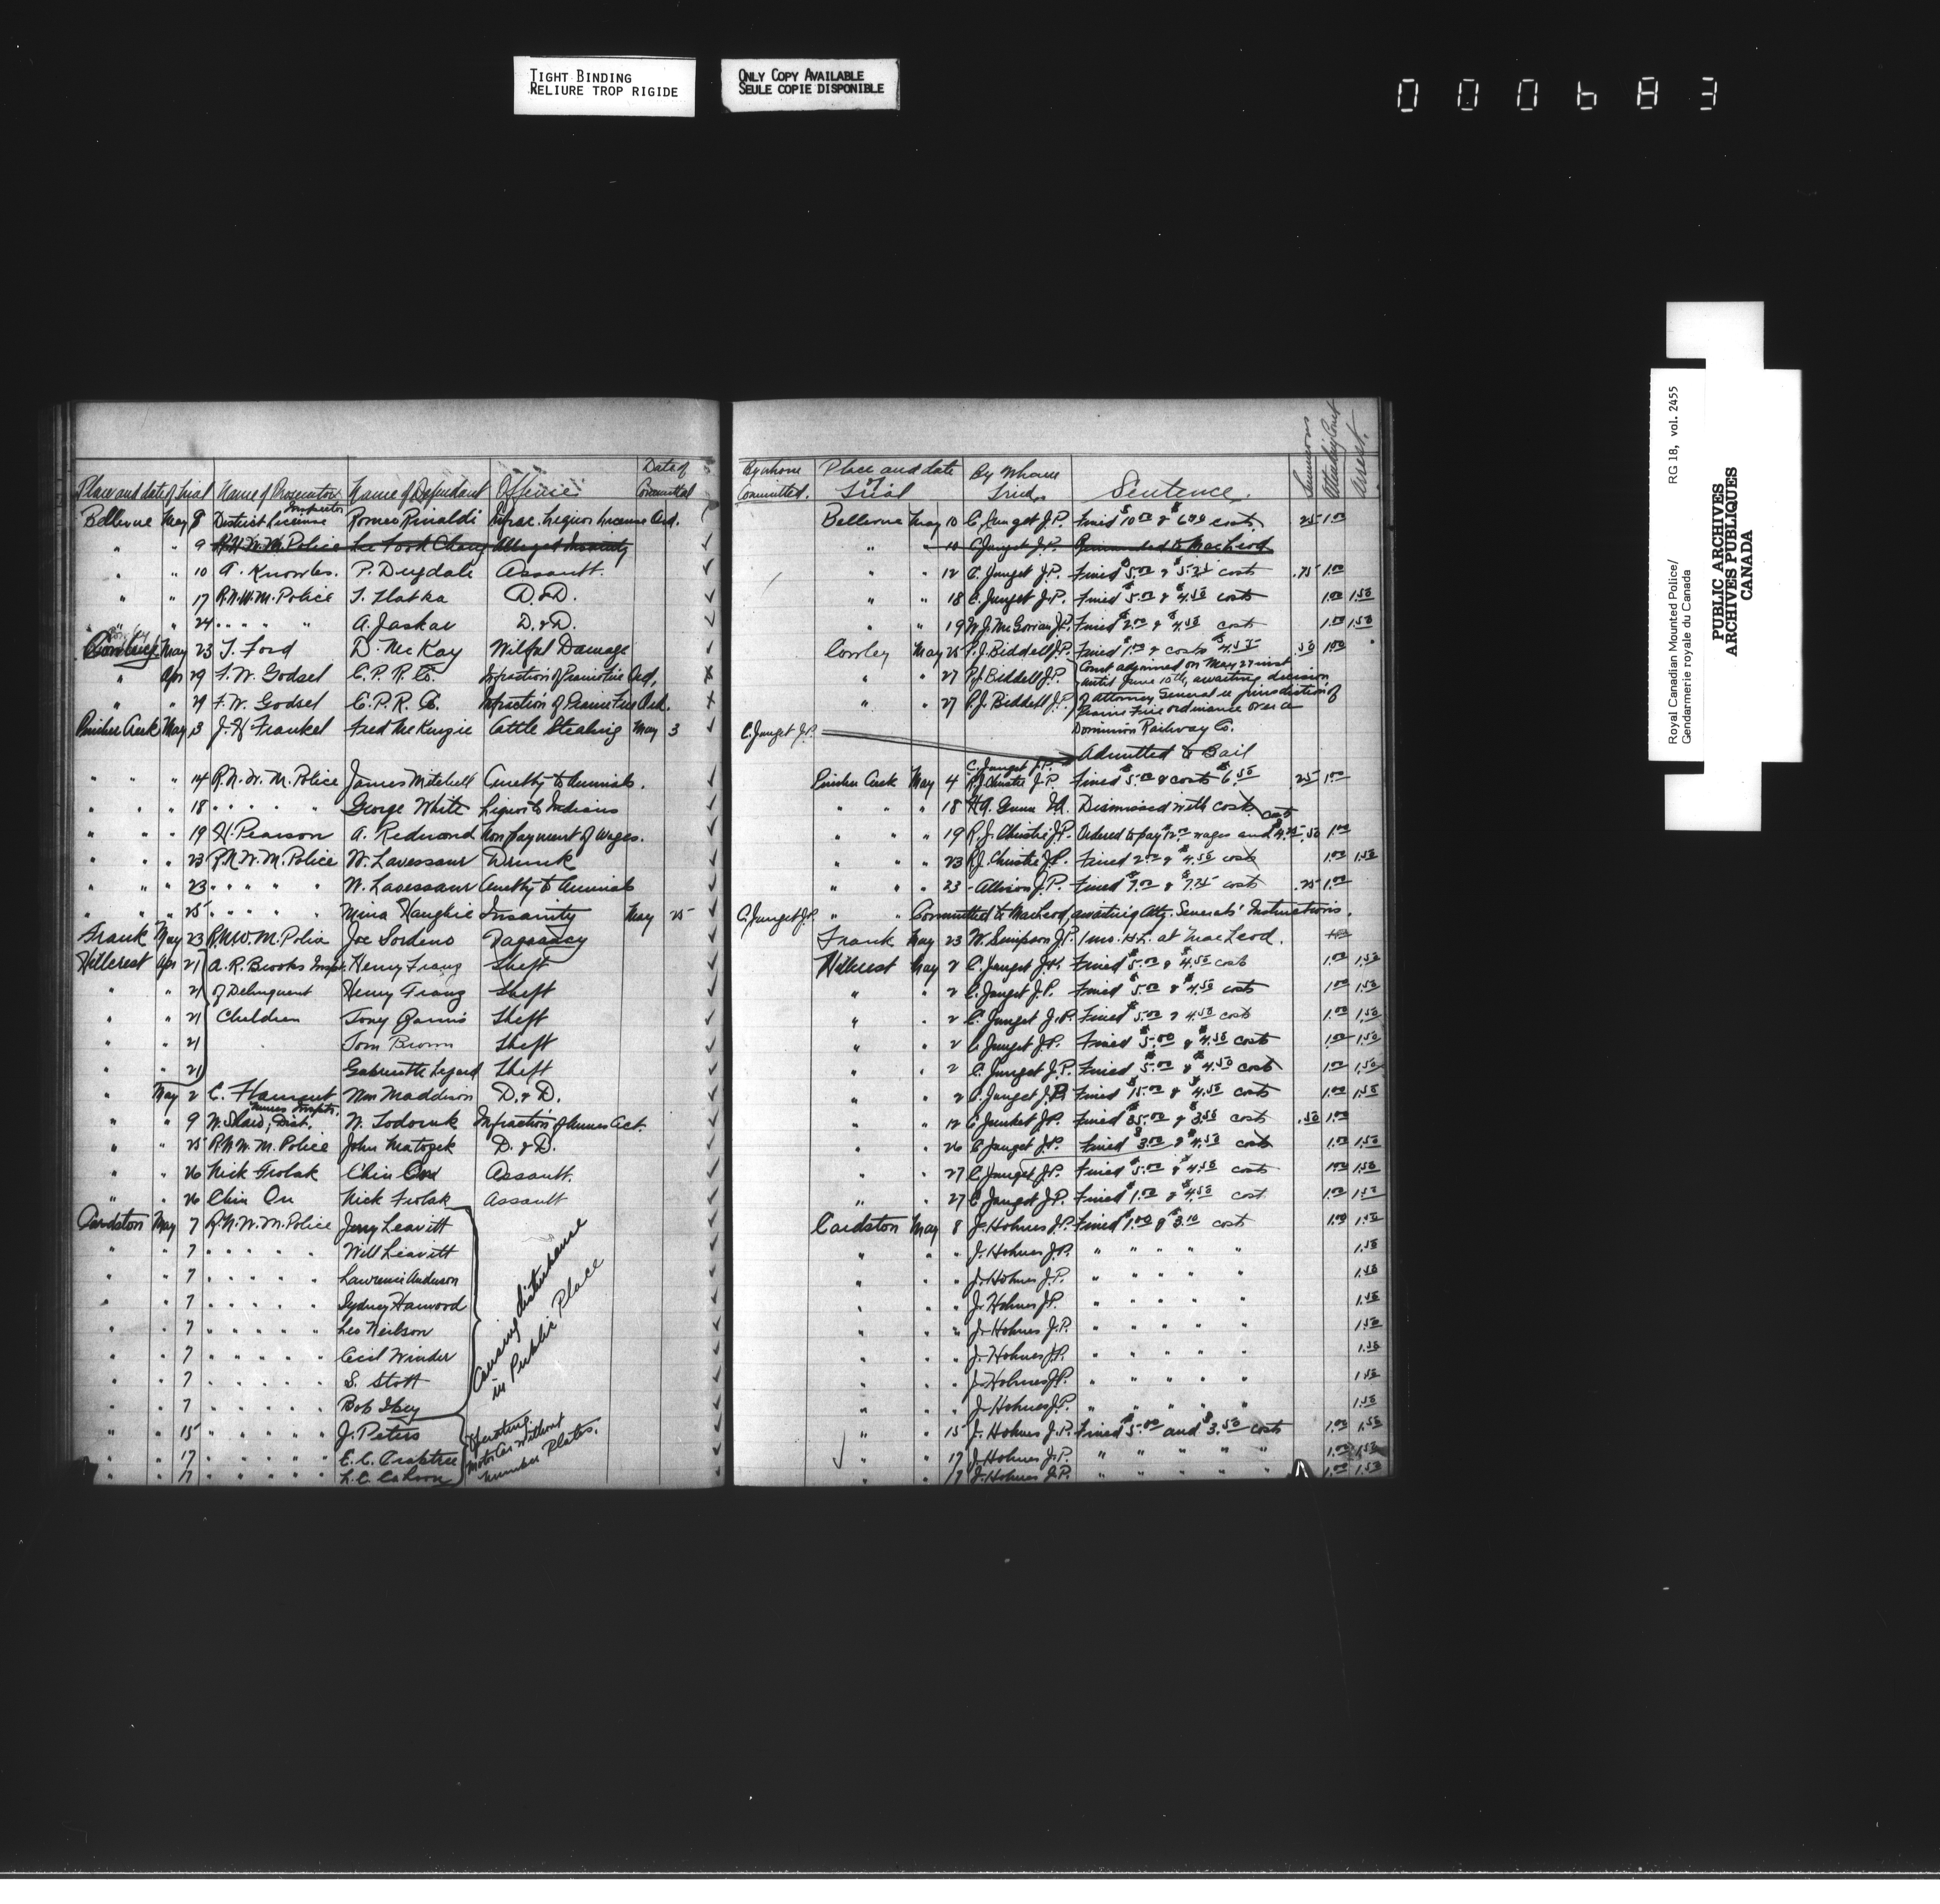 TIGHT BINDING
RELIURE TROP RIGIDE
ONLY COPY AVAILABLE
SEULE COPIE DISPONIBLE
000683
Royal Canadian Mounted Police/ RG 18, vol. 2455
Gendarmerie royale du Canada
PUBLIC ARCHIVES
ARCHIVES PUBLIQUES
CANADA
Place and date of Trial Name of Prosecutor Name of Defendant Offense Date of Committal By whom Committed. Place and date of Trial By Whom Tried. Sentence. Summons Attending Court Arrest.
Bellevue May 8 District License Inspector Romeo Rinaldi Infrac. Liquor License Ord. Bellevue May 10 C. Junget J.P. Fined $10.00 & costs .25 1.00
" " 9 R.N.W.M. Police Alleged Insanity " " 10 C. Junget J.P. Remanded to MacLeod
" " 10 A. Knowles. P. Dugdale Assault. " " 12 C. Junget J.P. Fined $5.00 & costs .75 1.00
" " 17 R.N.W.M. Police D. & D. " " 18 C. Junget J.P. Fined $5.00 & $4.50 costs 1.00 1.50
" " 24 " " " " A. Jaskar D. & D. " " 19 Fined $2.00 & $4.50 costs 1.00 1.50
Cowley May 23 T. Ford D. McKay Wilful Damage Cowley May 25 Fined $1.00 & costs .50 1.00
" Apr 29 F.W. Godsel C.P.R. Co. Infraction of Prairie Fire Ord. " " 27 Court adjourned on May 27 inst until June 10th, awaiting decision
" 29 F.W. Godsel C.P.R. Co. Infraction of Prairie Fire Ord. " " 27 of Attorney General re jurisdiction of Prairie Fire ordinance over a
Dominion Railway Co.
Pincher Creek May 3 J.H. Frankel Fred McKenzie Cattle Stealing May 3 C. Junget J.P. Admitted to Bail
" " " 14 R.N.W.M. Police James Mitchell Cruelty to Animals. Pincher Creek May 4 C. Junget J.P. R.J. Christie J.P. Fined $5.00 & costs $6.50 .25 1.00
" " " 18 " " " " George White Liquor to Indians " " " 18 Dismissed with costs
" " " 19 H. Pearson A. Redmond Non payment of Wages. " " " 19 R.J. Christie J.P. Ordered to pay $12.00 wages and costs .50 1.00
" " " 23 R.N.W.M. Police W. Lavessaur Drunk " " " 23 R.J. Christie J.P. Fined 2.00 & $4.50 costs 1.00 1.50
" " " 23 " " " " W. Lavessaur Cruelty to Animals " " " 23 Allison J.P. Fined $7.00 & $7.25 costs .25 1.00
" " " 25 " " " " Mina Insanity May 25 C. Junget J.P. " " Committed to MacLeod, awaiting Atty. Generals' Instructions.
Frank May 23 R.N.W.M. Police Joe Sordeno Vagrancy Frank May 23 W. Simpson J.P. 1 mo. H.L. at MacLeod.
Hillcrest Apr 21 A.R. Brooks Inspt. Henry Franz Theft Hillcrest May 2 C. Junget J.P. Fined $5.00 & $4.50 costs 1.00 1.50
" " 21 of Delinquent Henry Franz Theft " " 2 C. Junget J.P. Fined $5.00 & $4.50 costs 1.00 1.50
" " 21 Children Tony Theft " " 2 C. Junget J.P. Fined $5.00 & 4.50 costs 1.00 1.50
" " 21 Tom Brown Theft " " 2 C. Junget J.P. Fined $5.00 & $4.50 costs 1.00 1.50
" " 21 Theft " " 2 C. Junget J.P. Fined $5.00 & $4.50 costs 1.00 1.50
" May 2 C. Flament Wm Maddison D. & D. " " 2 C. Junget J.P. Fined $15.00 & $4.50 costs 1.00 1.50
" " 9 Dist. Mines Inspts. W. Todoruk Infraction of Mines Act. " " 12 C. Junket J.P. Fined $25.00 & $3.50 costs .50 1.00
" " 25 R.N.W.M. Police John Matozek D. & D. " " 26 C. Junget J.P. Fined $3.00 & $4.50 costs 1.00 1.50
" " 26 Nick Frolak Chin On Assault. " " 27 C. Junget J.P. Fined $5.00 & $4.50 costs 1.00 1.50
" " 26 Chin On Nick Frolak Assault " " 27 C. Junget J.P. Fined $1.00 & $4.50 cost 1.00 1.50
Cardston May 7 R.N.W.M. Police Jerry Leavitt Causing disturbance in Public Place Cardston May 8 J. Holmes J.P. Fined $1.00 & $3.10 costs 1.00 1.50
" " 7 " " " " " Will Leavitt " " " J. Holmes J.P. " " " " " 1.50
" " 7 " " " " " Lawrence Anderson " " " J. Holmes J.P. " " " " " 1.50
" " 7 " " " " " Sydney Harwood " " " J. Holmes J.P. " " " " " 1.50
" " 7 " " " " " Leo Neilson " " " J. Holmes J.P. " " " " " 1.50
" " 7 " " " " " Cecil Winder " " " J. Holmes J.P. " " " " " 1.50
" " 7 " " " " " S. Stott " " " J. Holmes J.P. " " " " " 1.50
" " 7 " " " " " Bob Ibey " " " J. Holmes J.P. " " " " " 1.50
" " 15 " " " " " J. Peters Operating Motor Car Without Number Plates. " " 15 J. Holmes J.P. Fined $5.00 and $3.50 costs 1.00 1.50
" " 17 " " " " " E.C. Crabtree " " 17 J. Holmes J.P. " " " " " 1.00 1.50
" " 17 " " " " " L.C. Cahoon " " 17 J. Holmes J.P. " " " " " 1.00 1.50